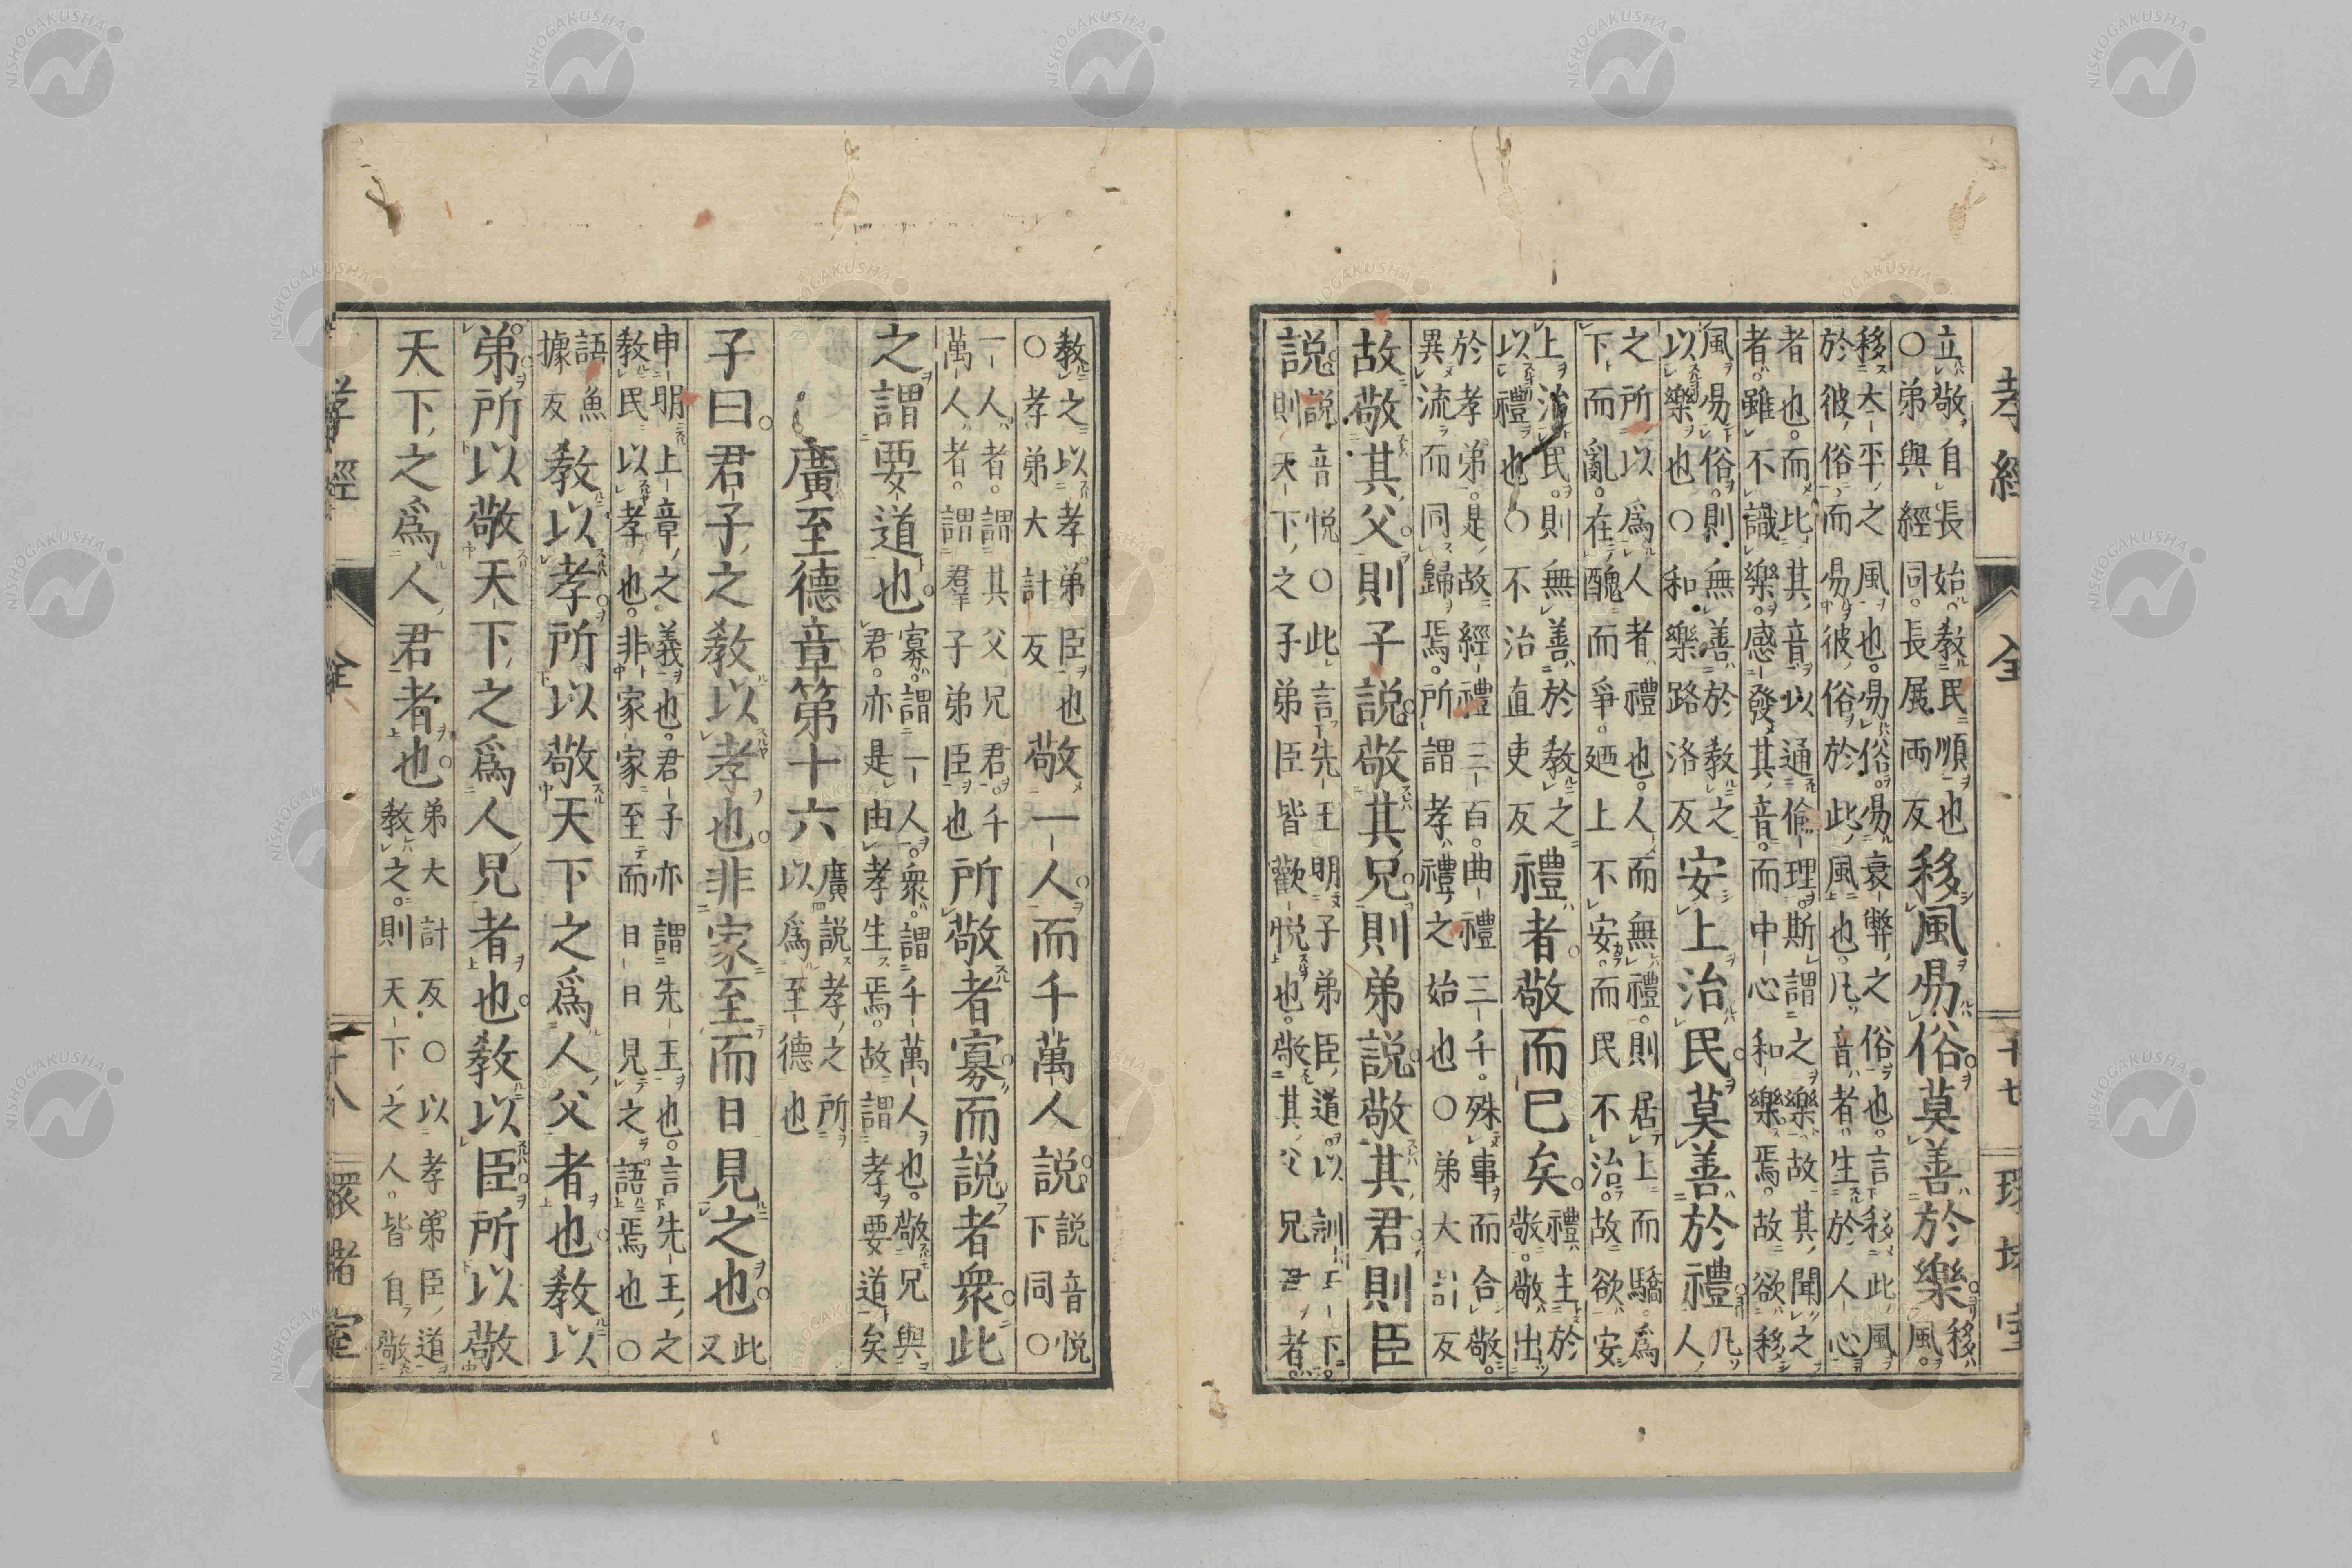 孝經　全　十七　環堵室
立敬自長始教民順也
○弟與經同。長展兩反
移風易俗莫善於樂
移
風
移太平之風也。易俗易衰弊之俗也。言移此風
於彼俗而易彼俗於此風也。凡音者。生於人心
者也。而此其音以通倫理。斯謂之樂。故其聞之
者。雖不識樂。感發其音。而中心和樂焉。故欲移
風易俗。則無善於教之
以樂也○和樂路洛反
安上治民莫善於禮
凡
人
之所以爲人者禮也。人而無禮。則居上而驕爲
下而亂。在醜而爭。廼上不安。而民不治。故欲安
上治民。則無善於教之
以禮也○不治直吏反
禮者。敬而已矣。
禮主於
敬。敬出
於孝弟。是故經禮三百。曲禮三千。殊事而合敬。
異流而同歸焉。所謂孝禮之始也○弟大計反
故敬其父則子說敬其兄則弟說敬其君則臣
說
說音悅○此言先王明子弟臣道以訓于下。
則天下之子弟臣皆歡悅也。敬其父兄君者。
教之以孝弟臣也
○孝弟大計反
敬一人而千萬人說
說音悅
下同○
一人者。謂其父兄君。千
萬人者。謂羣子弟臣也
所敬者寡而說者衆此
之謂要道也。
寡謂一人。衆謂千萬人也。敬兄與
君。亦是由孝生焉。故謂孝要道矣
廣至德章第十六
廣說孝之所
以爲至德也
子曰。君子之教以孝也。非家至而日見之也。
此
又
申明上章之義也。君子亦謂先王也。言先王之
教民以孝也。非家家至而日日見之語焉也○
語魚
據反
教以孝。所以敬天下之爲人父者也。教以
弟。所以敬天下之爲人兄者也。教以臣。所以敬
天下之爲人君者也。
弟大計反。○以孝弟臣道
教之。則天下之人。皆自敬
孝經　全　十八　環堵室